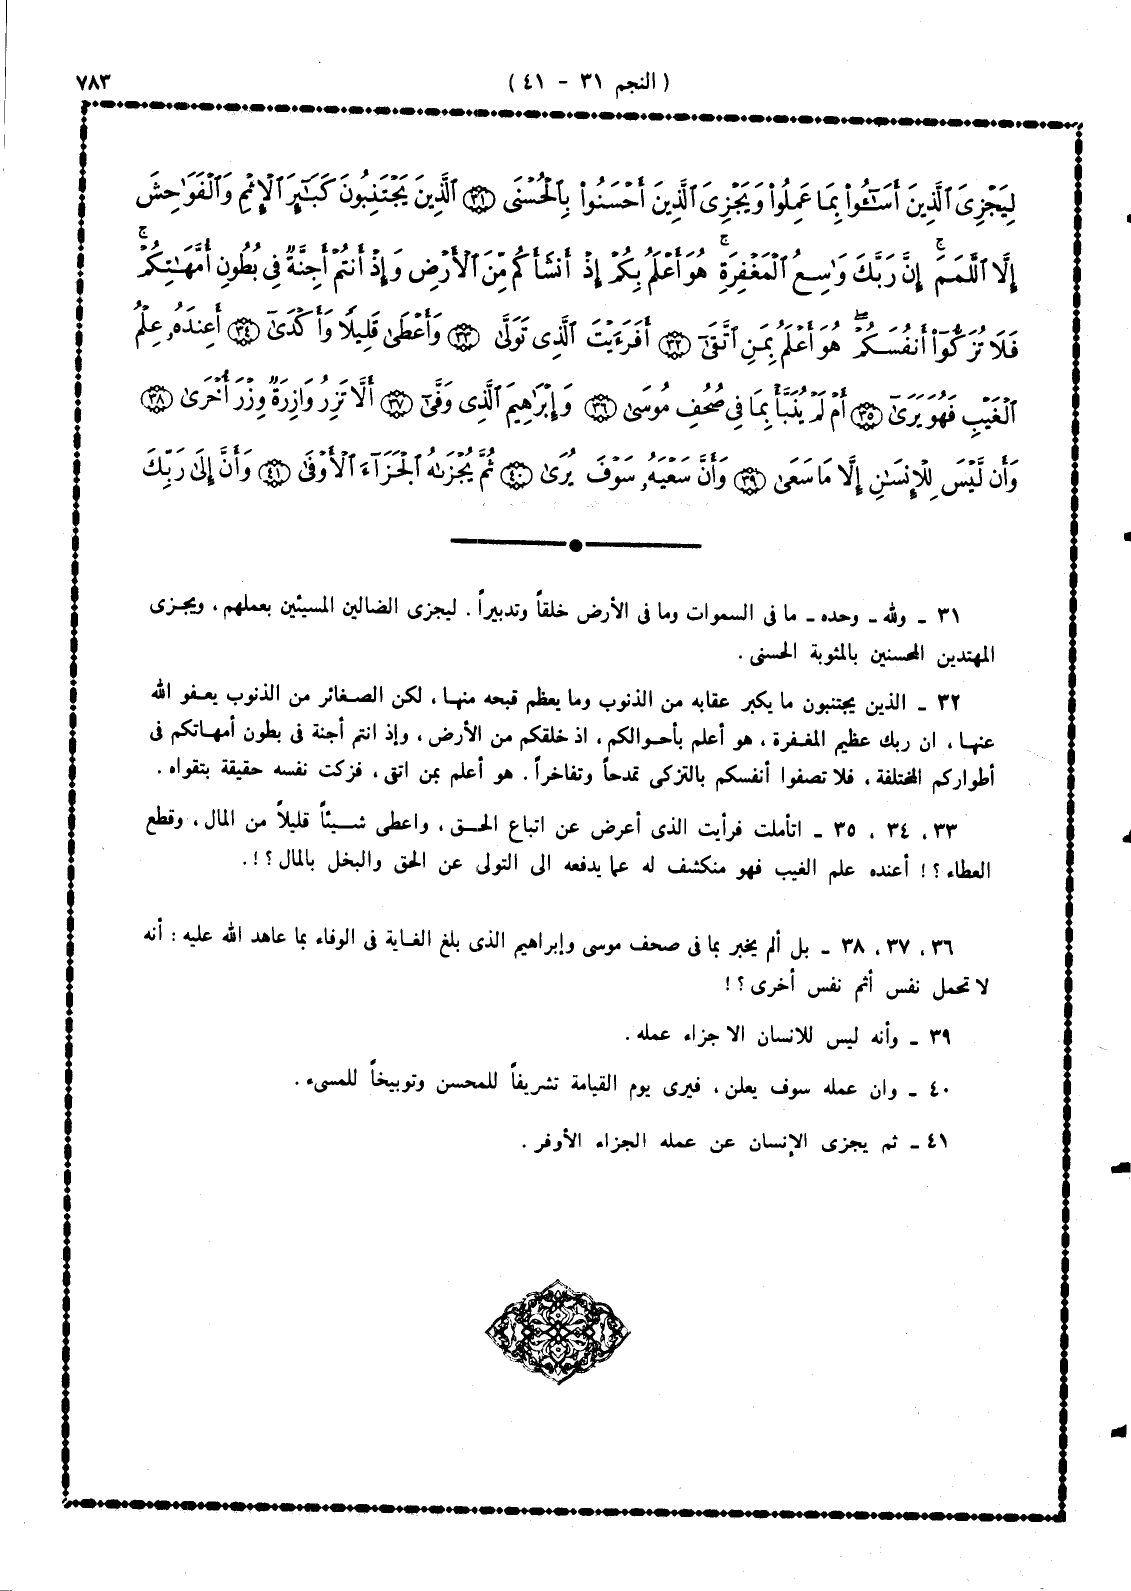 ( النجم ٣١ - ٤١ )
٧٨٣
لِيَجْزِىَ ٱلَّذِينَ أَسَٰٓـُٔوا۟ بِمَا عَمِلُوا۟ وَيَجْزِىَ ٱلَّذِينَ أَحْسَنُوا۟ بِٱلْحُسْنَى ٣١ ٱلَّذِينَ يَجْتَنِبُونَ كَبَٰٓئِرَ ٱلْإِثْمِ وَٱلْفَوَٰحِشَ
إِلَّا ٱللَّمَمَ ۚ إِنَّ رَبَّكَ وَٰسِعُ ٱلْمَغْفِرَةِ ۚ هُوَ أَعْلَمُ بِكُمْ إِذْ أَنشَأَكُم مِّنَ ٱلْأَرْضِ وَإِذْ أَنتُمْ أَجِنَّةٌ فِى بُطُونِ أُمَّهَٰتِكُمْ ۚ
فَلَا تُزَكُّوٓا۟ أَنفُسَكُمْ ۖ هُوَ أَعْلَمُ بِمَنِ ٱتَّقَىٰٓ ٣٢ أَفَرَءَيْتَ ٱلَّذِى تَوَلَّىٰ ٣٣ وَأَعْطَىٰ قَلِيلًا وَأَكْدَىٰٓ ٣٤ أَعِندَهُۥ عِلْمُ
ٱلْغَيْبِ فَهُوَ يَرَىٰٓ ٣٥ أَمْ لَمْ يُنَبَّأْ بِمَا فِى صُحُفِ مُوسَىٰ ٣٦ وَإِبْرَٰهِيمَ ٱلَّذِى وَفَّىٰٓ ٣٧ أَلَّا تَزِرُ وَازِرَةٌ وِزْرَ أُخْرَىٰ ٣٨
وَأَن لَّيْسَ لِلْإِنسَٰنِ إِلَّا مَا سَعَىٰ ٣٩ وَأَنَّ سَعْيَهُۥ سَوْفَ يُرَىٰ ٤٠ ثُمَّ يُجْزَىٰهُ ٱلْجَزَآءَ ٱلْأَوْفَىٰ ٤١ وَأَنَّ إِلَىٰ رَبِّكَ
٣١ - ولله - وحده - ما فى السموات وما فى الأرض خلقاً وتدبيراً . ليجزى الضالين المسيئين بعملهم ، ويجزى
المهتدين المحسنين بالمثوبة الحسنى .
٣٢ - الذين يجتنبون ما يكبر عقابه من الذنوب وما يعظم قبحه منها ، لكن الصغائر من الذنوب يعفو الله
عنها ، ان ربك عظيم المغفرة ، هو أعلم بأحوالكم ، اذ خلقكم من الأرض ، وإذ انتم أجنة فى بطون أمهاتكم فى
أطواركم المختلفة ، فلا تصفوا أنفسكم بالتزكى تمدحاً وتفاخراً . هو أعلم بمن اتقى ، فزكت نفسه حقيقة بتقواه .
٣٣ ، ٣٤ ، ٣٥ - اتأملت فرأيت الذى أعرض عن اتباع الحق ، واعطى شيئاً قليلاً من المال ، وقطع
العطاء ؟ ! أعنده علم الغيب فهو منكشف له عما يدفعه الى التولى عن الحق والبخل بالمال ؟ ! .
٣٦ ، ٣٧ ، ٣٨ - بل ألم يخبر بما فى صحف موسى وإبراهيم الذى بلغ الغاية فى الوفاء بما عاهد الله عليه : أنه
لا تحمل نفس أثم نفس أخرى ؟ !
٣٩ - وأنه ليس للانسان الا جزاء عمله .
٤٠ - وان عمله سوف يعلن ، فيرى يوم القيامة تشريفاً للمحسن وتوبيخاً للمسىء .
٤١ - ثم يجزى الإنسان عن عمله الجزاء الأوفر .